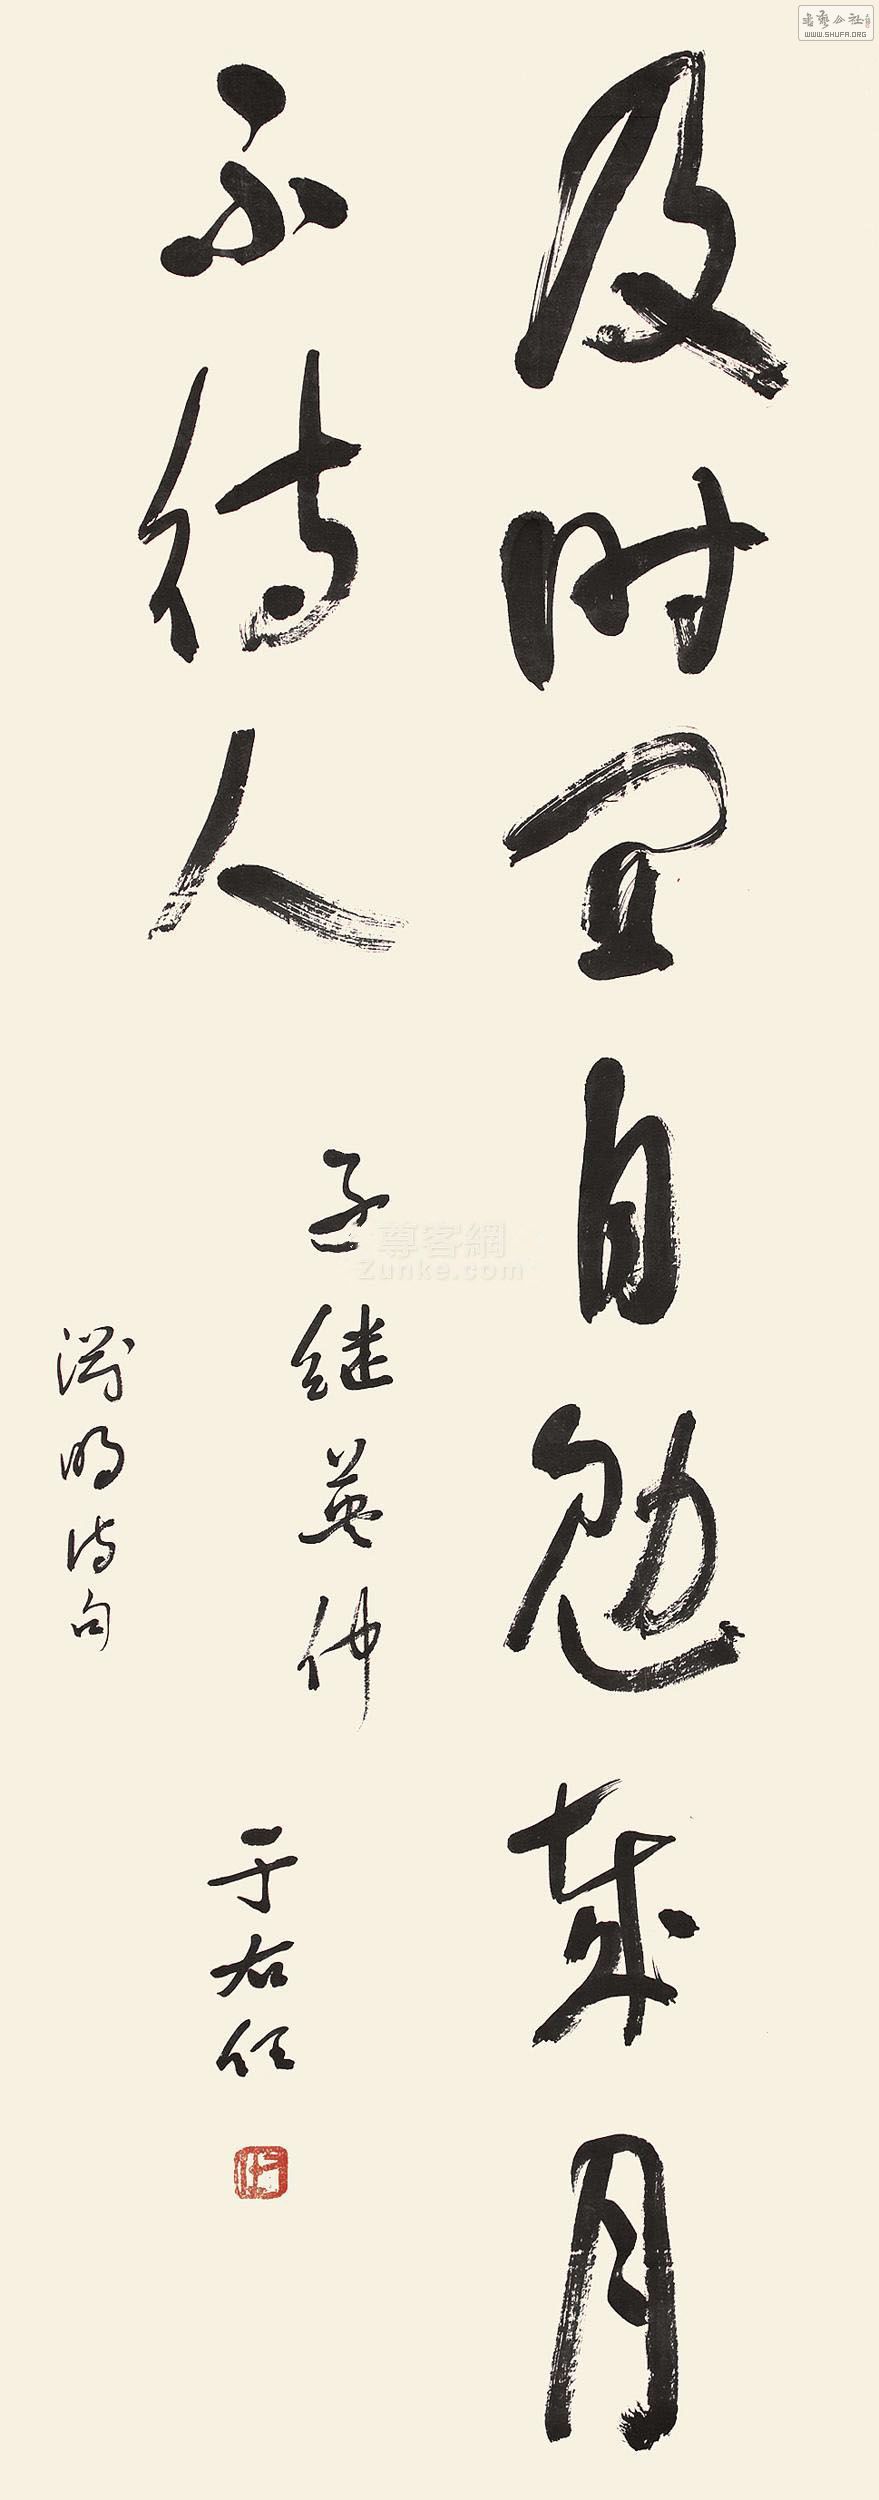 及时宜自勉岁月
不待人
子继英仲
于右任
渊明诗句
書藝公社
WWW.SHUFA.ORG
尊客網
Zunke.com